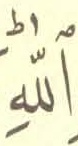 اللَّهِ